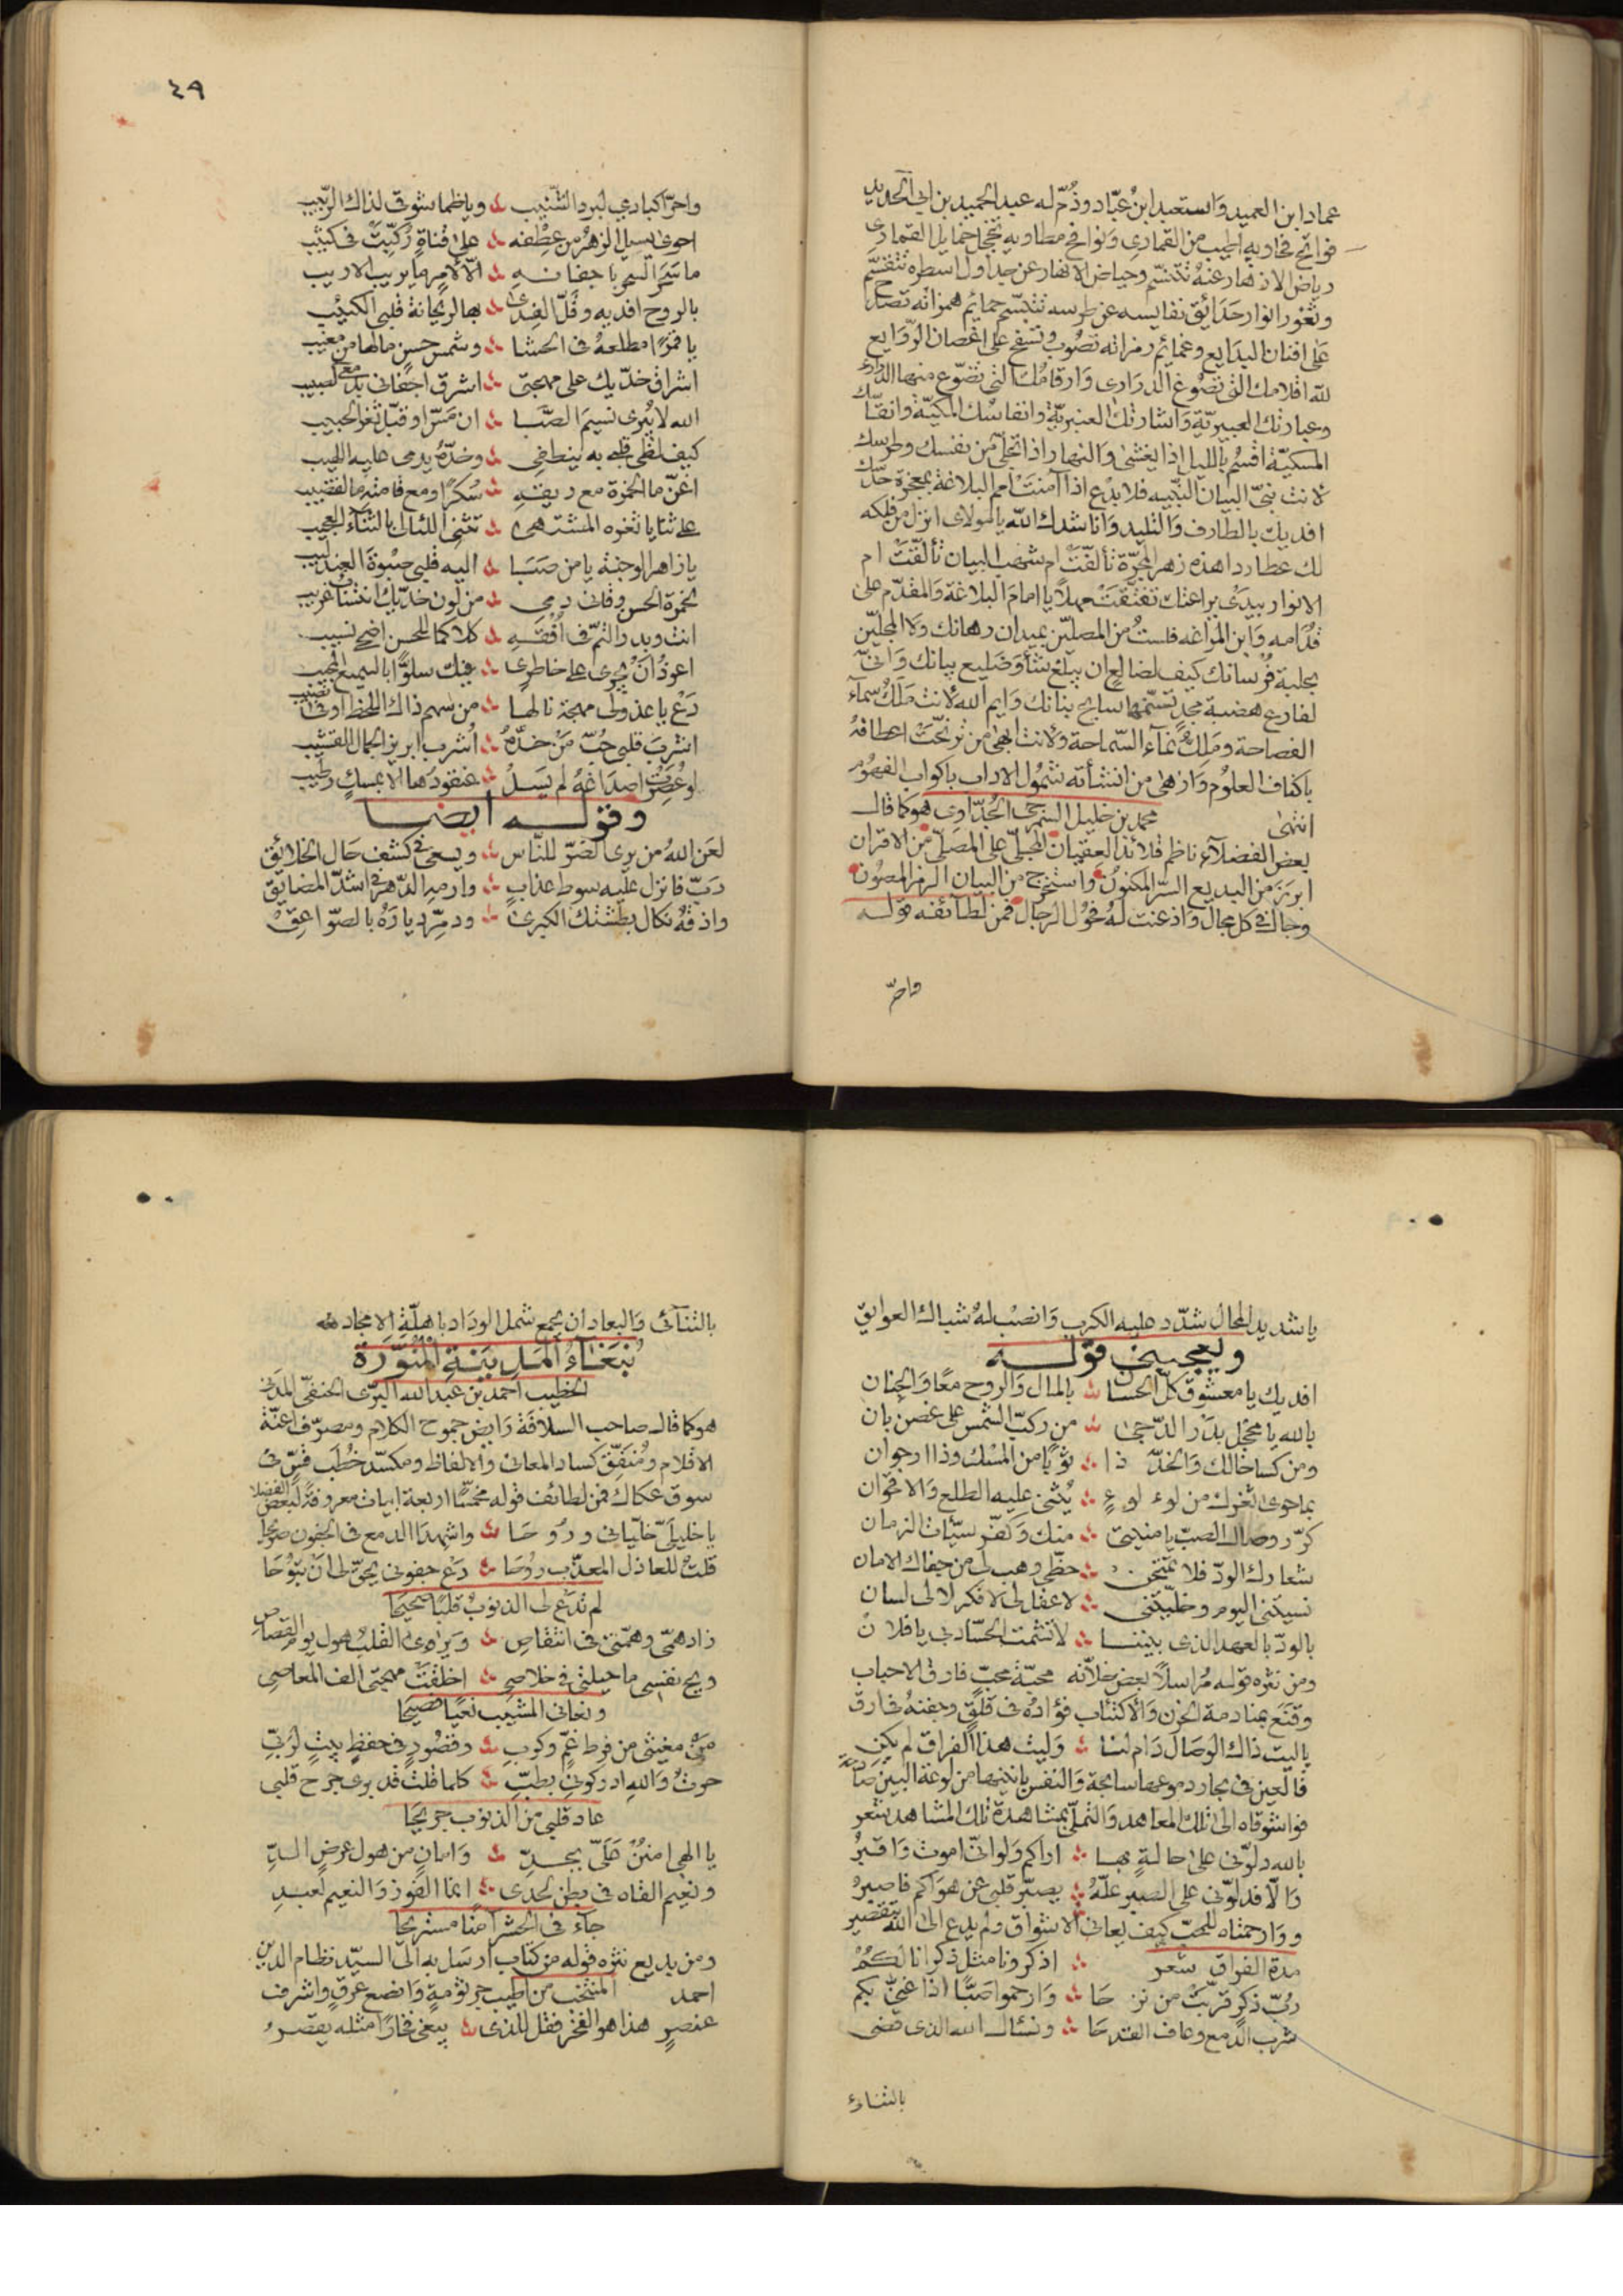 عماد ابن العميد وَاستعبد ابنُ عبّاد وذُمّ له عبد الحميد بن ابي الحديد
فواتح فخاويه اطيب من القمارى وَنوافح مطاويه تخجل خمايل القمارى
رياض الازهار عنهُ تتنسّم وحياض الانهار عن جداول اسطره تتقسّم
وثغور انوار حَدَائق نفايسه عن طرسه تتبسّم حمايم همزاته تصدح
عَلى افنان البدَايع وغمائم رمزاته تصُوب وتسفح على اغصان الرّوَايع
للّه اقلامك التى تصُوغ الدرَارى وَارقامُك التى تضّوع منها الدارى
وعبارتك العبيريّة وَاشارتك العنبريّة وانفاسُك المكيّة وانقاسك
المسكيّة اقسُم بالليل اذا يغشىٰ وَالنهار اذا تجلّى من نفسك وطرسك
لانت نبىّ البيان النبيه فلا بدْع اذا آمنَتْ امم البلاغة بمعجزة حدّك
افديك بالطارف وَالتليد وَانا شدك اللّه يا مولاى انزل من فلكه
لك عطارد اهذه زهر المجرّة تألقتْ ام شهب البيان تألّقتْ ام
الانوار بيدَىْ براعتك تفتقتْ مهلًا يا امامَ البلاغة وَالمقدّم على
قُدَامه وَابن المرَاغه فلستُ من المصلّين بميدان رهانك وَلا المجلّين
بحلبة فُرْسانك كيف لضالع ان يبلغ شأوَ ضليع بيانك وَانّى
لفارع هضبة مجدٍ تسنّمها سابح بنانك وَايم اللّه لانت مَلكُ سمآء
الفصاحة ومَلِك نمآء السّماحة ولانت ابهى من ترنّحتْ اعطافهُ
باكناف العلوُم وَازهىٰ من انتشأته شمُول الاداب باكواب الفهُوم
انتهىٰ محمد بن خليل السّمرجى الجُدّاوى هو كما قالـ
بعض الفضلآء ناظم قلائد العِقيَان المجلّى على المصَلّى من الاقران
ابرزَ من البديع السّر المكنوُن واستخرج من البيان الرمز المصُون
وجال فى كل مجال وَاذعنت لهُ فحُول الرجال فمن لطائفه قولــه
واحرّ
٤٩
واحرّ اكبادي لبرد الشنيب ؞ ويا ظما شوقى لذاك الربيب
احوىٰ يسيل الزهر من عِطْفه ؞ علىٰ قناةٍ رُكِّبتْ فى كثيب
ما سَحرَ السحر باجفانــهِ ؞ الّا لامرٍ ما يريب الاريب
بالروح افديه وقَلّ الفِدىٰ ؞ بها لريحانة قلبى الكئيب
يا قمرًا مطلعهُ فى الحشا ؞ وشمس حسنٍ مالها من مغيب
اشراق خدّيك على مهجتى ؞ اشرق اجفانى بدمعى لصبيب
الله لا يُبرى نسيمَ الصّبا ؞ ان مَسّ او قبّل ثغر الحبيب
كيف لظى قلبى به ينطفى ؞ وخدّهُ يدمى عليه اللهيب
اغنّ ما الخمرة مع ريقــهِ ؞ سُكرًا ومع قامته ما القضيب
على ثنايا ثغره المشتهى ؞ تثنى اللئالى بالثّنآء العجيب
يا زاهر الوجنة يا من صَبَا ؞ اليه قلبى صَبْوةَ العندليب
لحمرة الحسن وقانى دمى ؞ من لون خدّيك انتسابٌ غريب
انت وبدر التّم فى اُفْقــهِ ؞ كلاكما للحسن اضحى نسيب
اعوذُ اَنْ يجرى على خاطرى ؞ فيك سلوٌّ ابالسميع المجيب
دَعْ يا عذولى مهجة نالها ؞ من سَهم ذاك اللحظ اوفىٰ نصيب
اشربَ قلبى حُبّ مَنْ خدّهُ ؞ اُشرب ابريز الجمال القشيب
لو عُصِرتْ اصدَاغُهُ لم يَسَلْ ؞ عنقودَها الا بمسكٍ رطيب
وقولــــه ايضـــا
لعَن اللهُ من يرى الضوّ للنّاس ؞ ويسعى فى كشف حَال الخلائق
رَبّ فانزل عليه سوط عذابٍ ؞ وارمهِ الدّهرَ فى اشدّ المضايق
واذقهُ نكال بطشتك الكبرىٰ ؞ ودمِّر ديارَهُ بالصوّاعِقْ
٥٠
يا شديد المحال شدّد عليه الكرب وَانصُب لهُ شباك العوايق
ويعجبنى قولــــه
افديك يا معشوق كلّ الحسان ؞ بالمال وَالروح معًا وَالجنان
بالله يا مخجل بدْر الدّجىٰ ؞ من ركبّ الشمس على غصن بان
ومن كسا خالك وَالخدّ ذا ؞ ثوْبًا من المسْك وذا ارجوان
بما حوىٰ ثغرك من لوءلوءٍ ؞ يُثنى عليه الطلع وَالاقحوان
كرّر وصال الصبّ يا منيتى ؞ منك وَكفّر سيّئات الزمان
شعارك الودّ فلا تمتحن ؞ حظّى وهب لى من جفاك الامان
نسيتنى اليوم وخلّيتنى ؞ لا عقل لى لا فكر لا لى لسان
بالودّ بالعهد الذى بيننــا ؞ لا تشمت الحسّاد بى يا فلانْ
ومن نثره قولــه مُراسلًا بعض خلّانه محبّة محبّ فارق الاحباب
وقنَع بمنادمة الحزن وَالاكتئاب فؤادُه فى قلَقٍ وجفنهُ فى ارق
يا ليت ذاك الوصَال دَام لنــا ؞ وَليت هذا الفراق لم يكنِ
فالعين فى بحار دموعها سابحة وَالنفس بانينها من لوعة البين صائحة
فوا شوقاه الىٰ تلك المعاهد وَالتملّى بمشاهدة تلك المشاهد شعر
بالله دلوّنى علىٰ حالــةٍ بهــا ؞ اراكم وَلو انّى اموت وَاقبرُ
وَالّا فدلوّنى على الصبر علّهُ ؞ يصبّر قلبى عن هوَاكم فاصبرُ
ووَارحمتاه للمحبّ كيف يعانى الاشواق ولم يدع الىٰ الله بتقصير
مدة الفراق شعر ؞ اذكرونا مثل ذكرانا لكُمُ
رُبّ ذكرٍ قرّبتْ من نزحَا ؞ وَارحموا صَبًّا اذا غنىّ بكم
شرب الدّمع وعاف القدحَا ؞ ونسْالــ الله الذى قضى
بالتنآء
بالتنآئى وَالبعاد اَن يجمع شمل الودَاد باهلّةِ الامجاد
نبغَآءُ المَدِينَةِ المُنَوّرَة
الخطيب احمد بن عبدالله البرّى الحنفىّ المدَنى
هو كما قالــ صاحب السلافة رَايض جموح الكلام ومصرّف اعنّة
الاقلام ومُنفّق كساد المعانى وَالالفاظ ومكسّد خُطَب قُسّ فى
سوق عكاظ فمن لطائف قوله مخمّسًا اربعة ابيات معروفةً لبعض الفضلا
يا خليلىّ خلّيانى ورُوحَا ؞ واشهدَا الدمع فى الجفون صَرِيحَا
قلتُ للعاذل المعذّب روُحَا ؞ دَعْ جفونى يحقّ لى انَ تبوُحَا
لم تدَعْ لى الذنوبُ قلبًا صَحيحَا
زاد همّى وهمّتى فى انتقاصِ ؞ وَيَراهى القلبُ هول يوم القصاصِ
ويح نفسى ما حيلتى فى خلاصى ؞ اخلقَتْ مهجتى الف المعاصى
ونعانى المشيب نعيًا فصيحَا
مَنْ مغيثى من فرط غمٍّ وكربِ ؞ وقصُورٍ فى حفظِ بيتٍ لرَبّى
حرتُ وَاللهِ ادركونى بطبِّ ؞ كلما قلت قد برى جرح قلبى
عاد قلبى من الذنوب جريحَا
يا الهى امنُنْ عَلَىّ بجــدِّ ؞ وَامانٍ من هول عرضِ الــدِّ
ونعيم القاه فى بطن لحدى ؞ انما الفوز وَالنعيم لعبــدِ
جآءَ فى الحشر آمنًا مستريحَا
ومن بديع نثره قوله من كتاب ارسَل به الى السيّد نظام الدين
احمد المنتخب من اطيب جرثومةٍ وَانصع عرقٍ واشرف
عنصرٍ هذا هو الفخر فقل للذى ؞ يبغى فخارًا مثله يقصرُ